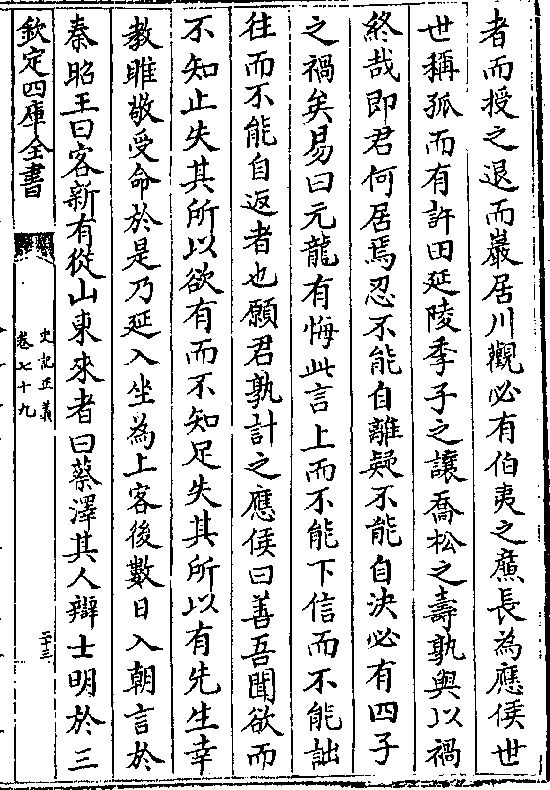 者而授之退而巖居川觀必有伯夷之廉長為應侯世
世稱孤而有許由延陵季子之讓喬松之壽孰與以禍
終哉即君何居焉忍不能自離疑不能自決必有四子
之禍矣易曰亢龍有悔此言上而不能下信而不能詘
往而不能自返者也願君孰計之應侯曰善吾聞欲而
不知止失其所以欲有而不知足失其所以有先生幸
教雎敬受命於是乃延入坐為上客後數日入朝言於
秦昭王曰客新有從山東來者曰蔡澤其人辯士明於三
欽定四庫全書
史記正義
卷七十九
二十三